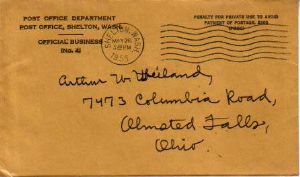 POST OFFICE DEPARTMENT
POST OFFICE, SHELTON, WASH.
OFFICIAL BUSINESS
(No. 4)
SHELTON, WASH.
MAY 26
1955
PENALTY FOR PRIVATE USE TO AVOID
PAYMENT OF POSTAGE, $300
Arthur W. Weiland,
7473 Columbia Road,
Olmsted Falls,
Ohio.